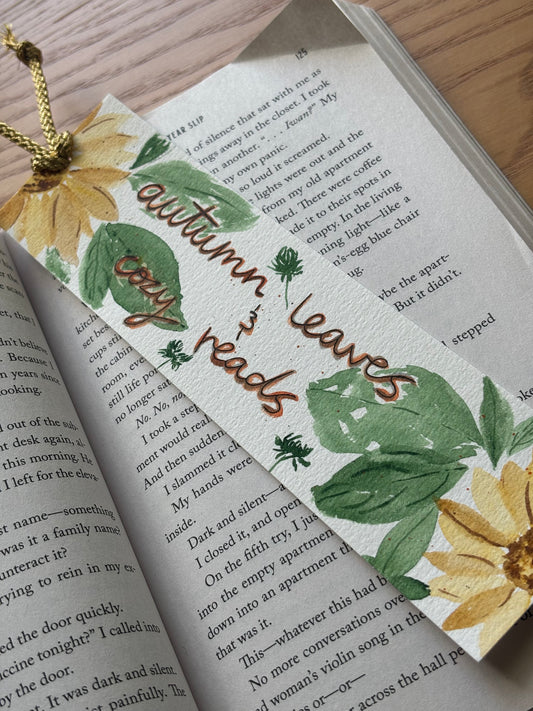 125
TEAR SLIP
d of silence that sat with me as
ngs away in the closet. I took
on another. “. . . Iwan?” My
my own panic.
so loud it screamed.
lights were out and the
from my old apartment
ked. There were coffee
de it to their spots in
empty. In the living
ning light—like a
n’s-egg blue chair
ybe the apart-
But it didn’t.
stepped
autumn leaves
&
cozy reads
kitchen
set besi
cups still
the cabin
room, eve
still life po
no longer sa
No. No, no
I took a step
ment would real
And then sudden
I slammed it cl
My hands were
inside.
Dark and silent—
I closed it, and open
On the fifth try, I jus
into the empty apartmen
down into an apartment th
that was it.
This—whatever this had b
No more conversations ove
nd woman’s violin song in the
es or—or—
r across the hall pe
et, that I
dn’t believe
Because I
n years since
ooking.
d out of the sub-
nt desk again, al-
this morning. He
I left for the eleva-
rst name—something
was it a family name?
unteract it?
rying to rein in my ex-
ed the door quickly.
ccine tonight?” I called into
by the door.
t. It was dark and silent.
st painfully. The